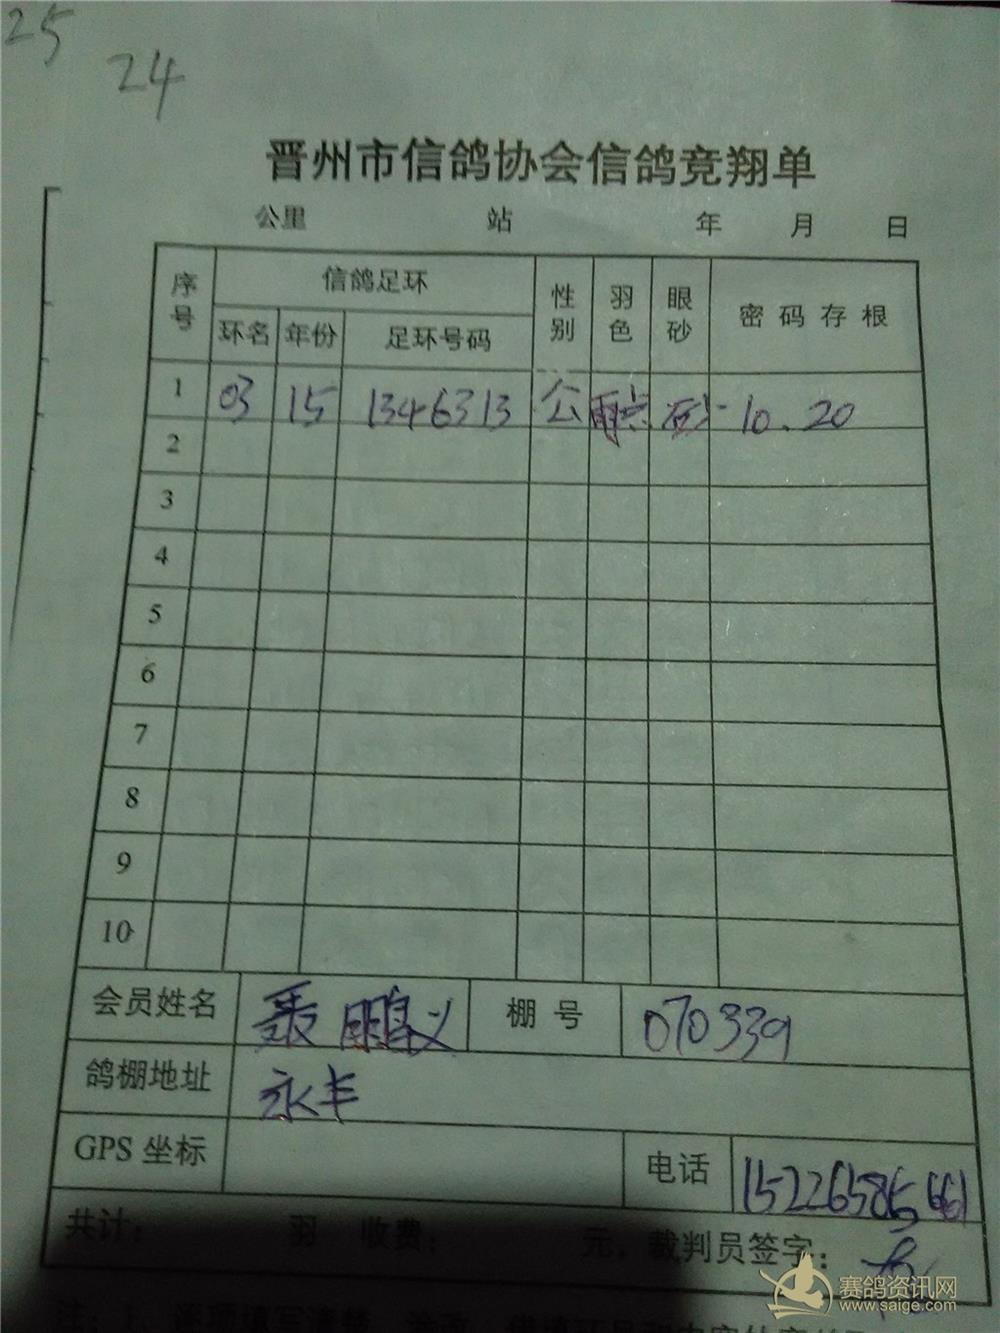 25
24
晋州市信鸽协会信鸽竞翔单
公里 站 年 月 日
序号 信鸽足环 性别 羽色 眼砂 密码存根
环名 年份 足环号码
1 03 15 1346313 公 雨点 砂 10.20
2
3
4
5
6
7
8
9
10
会员姓名 聂鹏义 棚号 070339
鸽棚地址 永丰
GPS 坐标 电话
共计: 羽 收费: 元. 裁判员签字:
注: 1、
赛鸽资讯网
www.saige.com